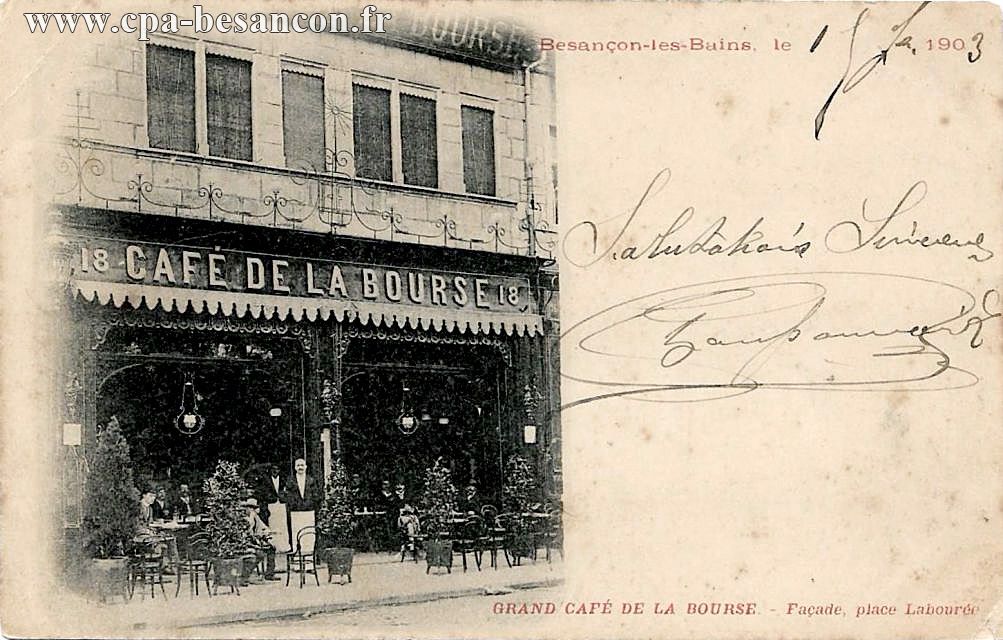 www.cpa-besancon.fr
BOURSE
Besançon-les-Bains, le 15 1903
18 CAFÉ DE LA BOURSE 18
Salutations Sincères
GRAND CAFÉ DE LA BOURSE. - Façade, place Labourée